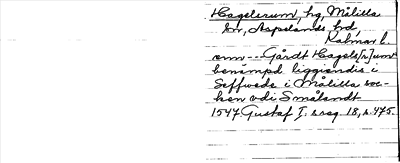 Hagelsrum, hg, Målilla
sn, Aspelands hd,
Kalmar l.
omn --- Gårdt Hagels[r]um
benämpd liggiendis i
Seffwede i Målilla soc-
ken vdi Smålandt
1547. Gustaf I:s reg. 18, s. 475.